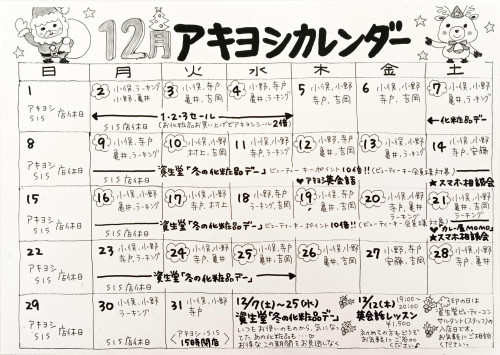 12月アキヨシカレンダー
日 月 火 水 木 金 土
1
アキヨシ
S15 店休日
2 小俣、ラーキング
小野、亀井
3 小俣、寺戸
亀井、吉岡
4 小俣、小野
寺戸、ラーキング
5 小俣、小野
寺戸、吉岡
6 小俣、小野
寺戸、亀井
7 小俣、寺戸
亀井、吉岡
ラーキング
S15 店休日
1・2・3セール
(お化粧品お買い上げでアキヨシシール2倍)
化粧品デー
8
アキヨシ
S15 店休日
9 小俣、小野
亀井、ラーキング
10 小俣、小野
村上、吉岡
11 小俣、小野
寺戸、ラーキング
12 小俣、寺戸
亀井、吉岡
13 小俣、小野
亀井、ラーキング
14 小俣、小野
寺戸、安藤
S15 店休日
資生堂「冬の化粧品デー」ビューティーキーポイント10倍!!(ビューティーキー会員様対象)
♥アキヨシ英会話
★スマホ相談会
15
アキヨシ
S15 店休日
16 小俣、小野
亀井、ラーキング
17 小俣、小野
寺戸、村上
18 小俣、小野
ラーキング、吉岡
19 小俣、寺戸
亀井、吉岡
20 小俣、小野
寺戸、ラーキング
21 小俣、小野
亀井、吉岡
ラーキング
S15 店休日
資生堂「冬の化粧品デー」ビューティーキーポイント10倍!!(ビューティーキー会員様対象)
♥カレー屋MOMO
★スマホ相談会
22
アキヨシ
S15 店休日
23 小俣、小野
寺戸、ラーキング
24 小俣、小野
寺戸、亀井
25 小俣、小野
亀井、吉岡
26 小俣、小野
寺戸、吉岡
27 小俣、寺戸
安藤、吉岡
28 小俣、小野
亀井
S15 店休日
資生堂「冬の化粧品デー」
29
アキヨシ
S15 店休日
30 小俣、小野
ラーキング
31 小俣、小野
寺戸
〈アキヨシ・S15
15時閉店〉
12/7(土)〜25(水)
資生堂「冬の化粧品デー」
いつもお使いのものから、気になっ
てたあのアイテムも
お得なこの期間をお見逃しなく
13/12(木) 19:00〜
20:00
英会話レッスン
¥1,500
初めての方もどうぞ
お気軽にご参加
ください
印の日は
資生堂ビューティーコン
サルタント(スタッフ)の
入店日です。
お気軽にご相談
ください